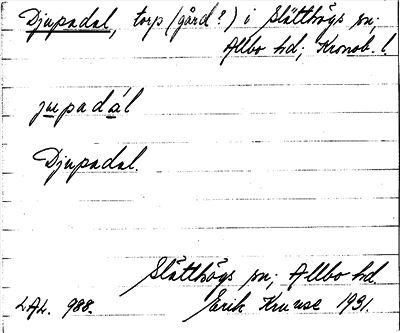 Djupadal, torp (gård?) i Slätthögs sn;
Allbo hd; Kronob. l.
jupadál
Djupadal.
Slätthögs sn; Allbo hd.
L.A.L. 988. Erik Kruuse 1931.